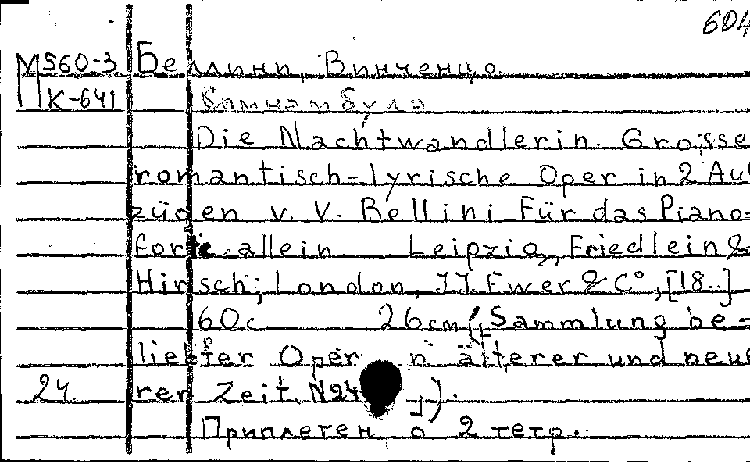 604
М560-3 Беллини, Винченцо.
К-641 Сомнамбула
Die Nachtwandlerin. Grosse
romantisch-lyrische Oper in 2 Auf
zügen v. V. Bellini Für das Piano=
forte allein Leipzig, Friedlein &
Hirsch; London, JJ Ewer & C°, [18..]
60с 26cm (Sammlung be=
liebter Oper n älterer und neue
24 rer Zeit. N24 ).
Приплетен 2 тетр.